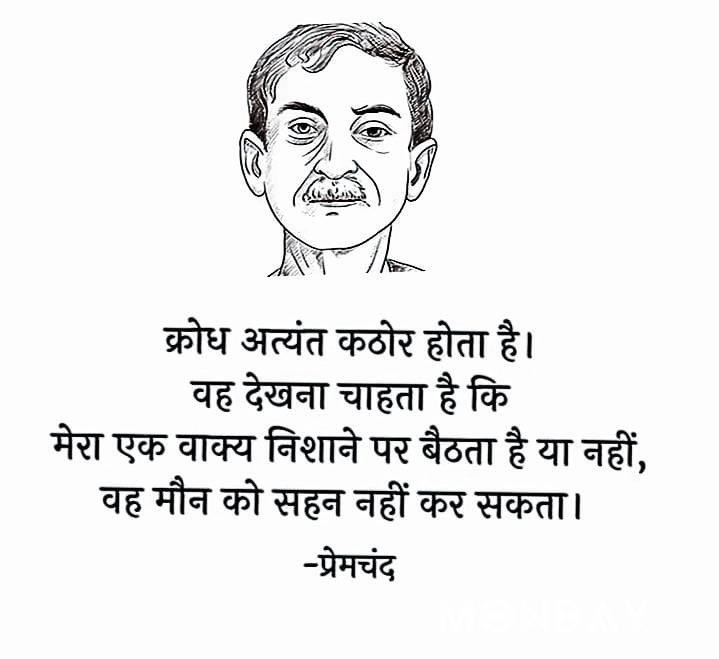 क्रोध अत्यंत कठोर होता है।
वह देखना चाहता है कि
मेरा एक वाक्य निशाने पर बैठता है या नहीं,
वह मौन को सहन नहीं कर सकता।
-प्रेमचंद
MONDAY